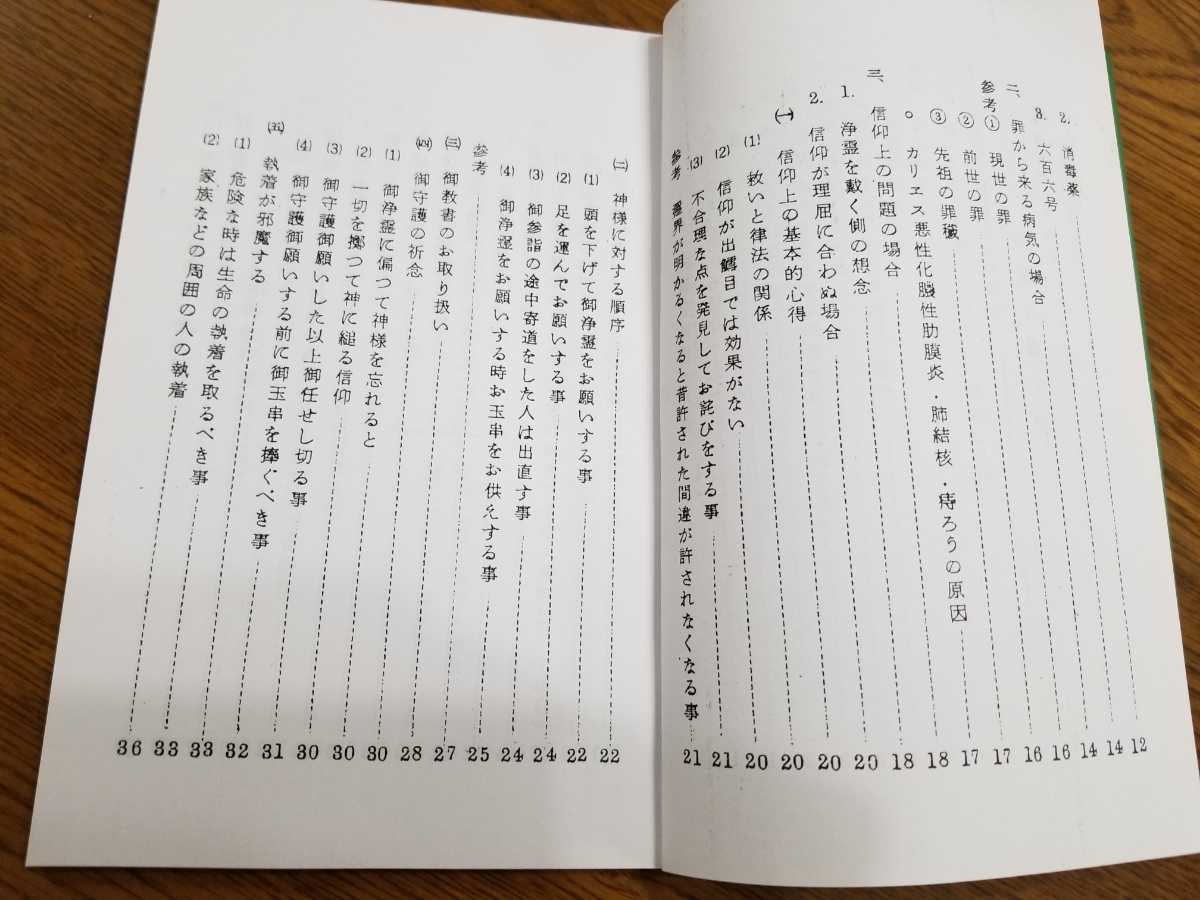 2. 消毒薬 12
3. 六百六号 14
二、罪から来る病気の場合 14
参考① 現世の罪 16
② 前世の罪 16
③ 先祖の罪穢 17
○ カリエス悪性化膿性肋膜炎・肺結核・痔ろうの原因 17
三、信仰上の問題の場合 18
1. 浄霊を戴く側の想念 18
2. 信仰が理屈に合わぬ場合 20
㈠ 信仰上の基本的心得 20
⑴ 救いと律法の関係 20
⑵ 信仰が出鱈目では効果がない 20
⑶ 不合理な点を発見してお詫びをする事 21
参考 霊界が明かるくなると昔許された間違が許されなくなる事 21
㈡ 神様に対する順序 22
⑴ 頭を下げて御浄霊をお願いする事 22
⑵ 足を運んでお願いする事 24
⑶ 御参詣の途中寄道をした人は出直す事 24
⑷ 御浄霊をお願いする時お玉串をお供えする事 25
参考 27
㈢ 御教書のお取り扱い 28
㈣ 御守護の祈念 30
⑴ 御浄霊に偏つて神様を忘れると 30
⑵ 一切を擲つて神に縋る信仰 30
⑶ 御守護御願いした以上御任せし切る事 31
⑷ 御守護御願いする前に御玉串を捧ぐべき事 32
㈤ 執着が邪魔する 33
⑴ 危険な時は生命の執着を取るべき事 33
⑵ 家族などの周囲の人の執着 36